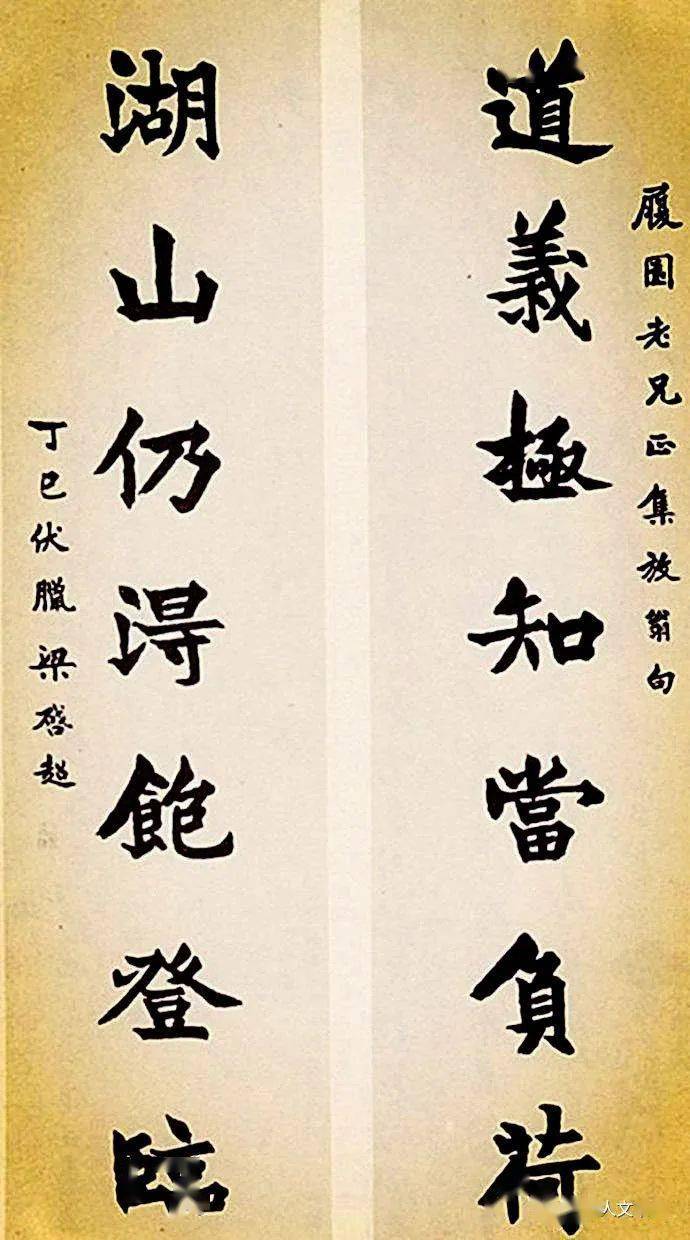 履園老兄正集放翁句
道義極知當負荷
湖山仍得飽登臨
丁巳伏臘梁啓超
人文